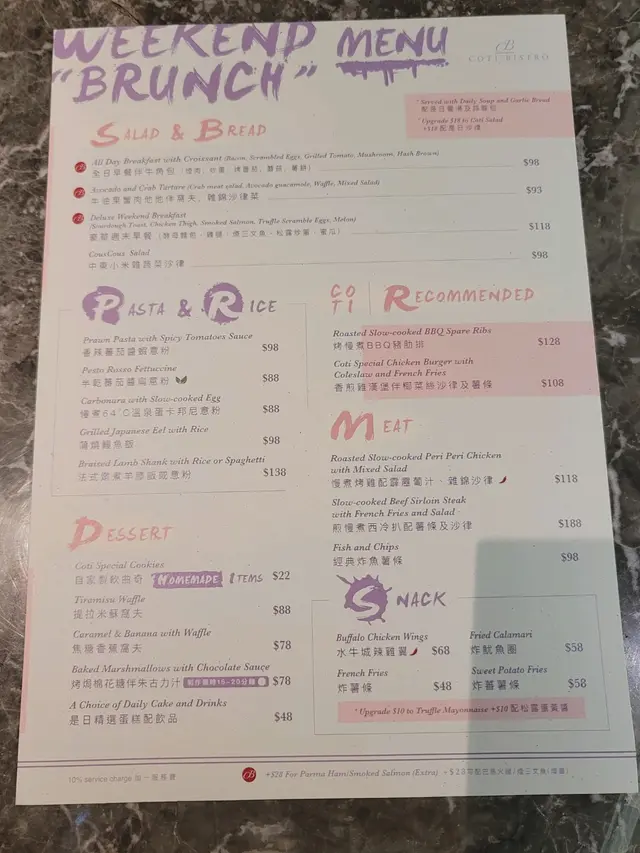 WEEKEND MENU
"BRUNCH"
COTI BISTRO
* Served with Daily Soup and Garlic Bread
* Upgrade $18 to Coti Salad
SALAD & BREAD
All Day Breakfast with Croissant (Bacon, Scrambled Eggs, Grilled Tomato, Mushroom, Hash Brown)
全日早餐伴牛角包 $98
Avocado and Crab Tartare (Crab meat salad, Avocado guacamole, Waffle, Mixed Salad)
牛油果蟹肉他他伴窩夫、雜錦沙律菜 $93
Deluxe Weekend Breakfast
(Sourdough Toast, Chicken Thigh, Smoked Salmon, Truffle Scramble Eggs, Melon)
豪華週末早餐 $118
CousCous Salad
中東小米雜蔬菜沙律 $98
PASTA & RICE
Prawn Pasta with Spicy Tomatoes Sauce
香辣蕃茄醬蝦意粉 $98
Pesto Rosso Fettuccine
半乾蕃茄醬扁意粉 $88
Carbonara with Slow-cooked Egg
慢煮64°C溫泉蛋卡邦尼意粉 $88
Grilled Japanese Eel with Rice
蒲燒鰻魚飯 $98
Braised Lamb Shank with Rice or Spaghetti
法式燉煮羊膝飯或意粉 $138
COTI RECOMMENDED
Roasted Slow-cooked BBQ Spare Ribs
烤慢煮BBQ豬肋排 $128
Coti Special Chicken Burger with
Coleslaw and French Fries
香煎雞漢堡伴椰菜絲沙律及薯條 $108
MEAT
Roasted Slow-cooked Peri Peri Chicken
with Mixed Salad
慢煮烤雞配霹靂葡汁、雜錦沙律 $118
Slow-cooked Beef Sirloin Steak
with French Fries and Salad
煎慢煮西冷扒配薯條及沙律 $188
Fish and Chips
經典炸魚薯條 $98
DESSERT
Coti Special Cookies
自家製軟曲奇 HOMEMADE ITEMS $22
Tiramisu Waffle
提拉米蘇窩夫 $88
Caramel & Banana with Waffle
焦糖香蕉窩夫 $78
Baked Marshmallows with Chocolate Sauce
烤焗棉花糖伴朱古力汁 製作需時15-20分鐘 $78
A Choice of Daily Cake and Drinks
是日精選蛋糕配飲品 $48
SNACK
Buffalo Chicken Wings
水牛城辣雞翼 $68
Fried Calamari
炸魷魚圈 $58
French Fries
炸薯條 $48
Sweet Potato Fries
炸蕃薯條 $58
* Upgrade $10 to Truffle Mayonnaise +$10 配松露蛋黃醬
10% service charge 加一服務費
+$28 For Parma Ham/Smoked Salmon (Extra)